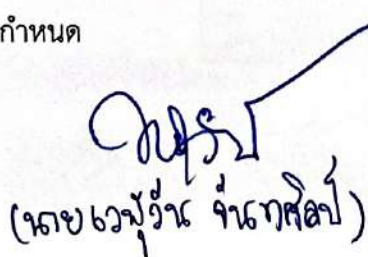 กำหนด
(นายเวฬุวัน จันทศิลป์)